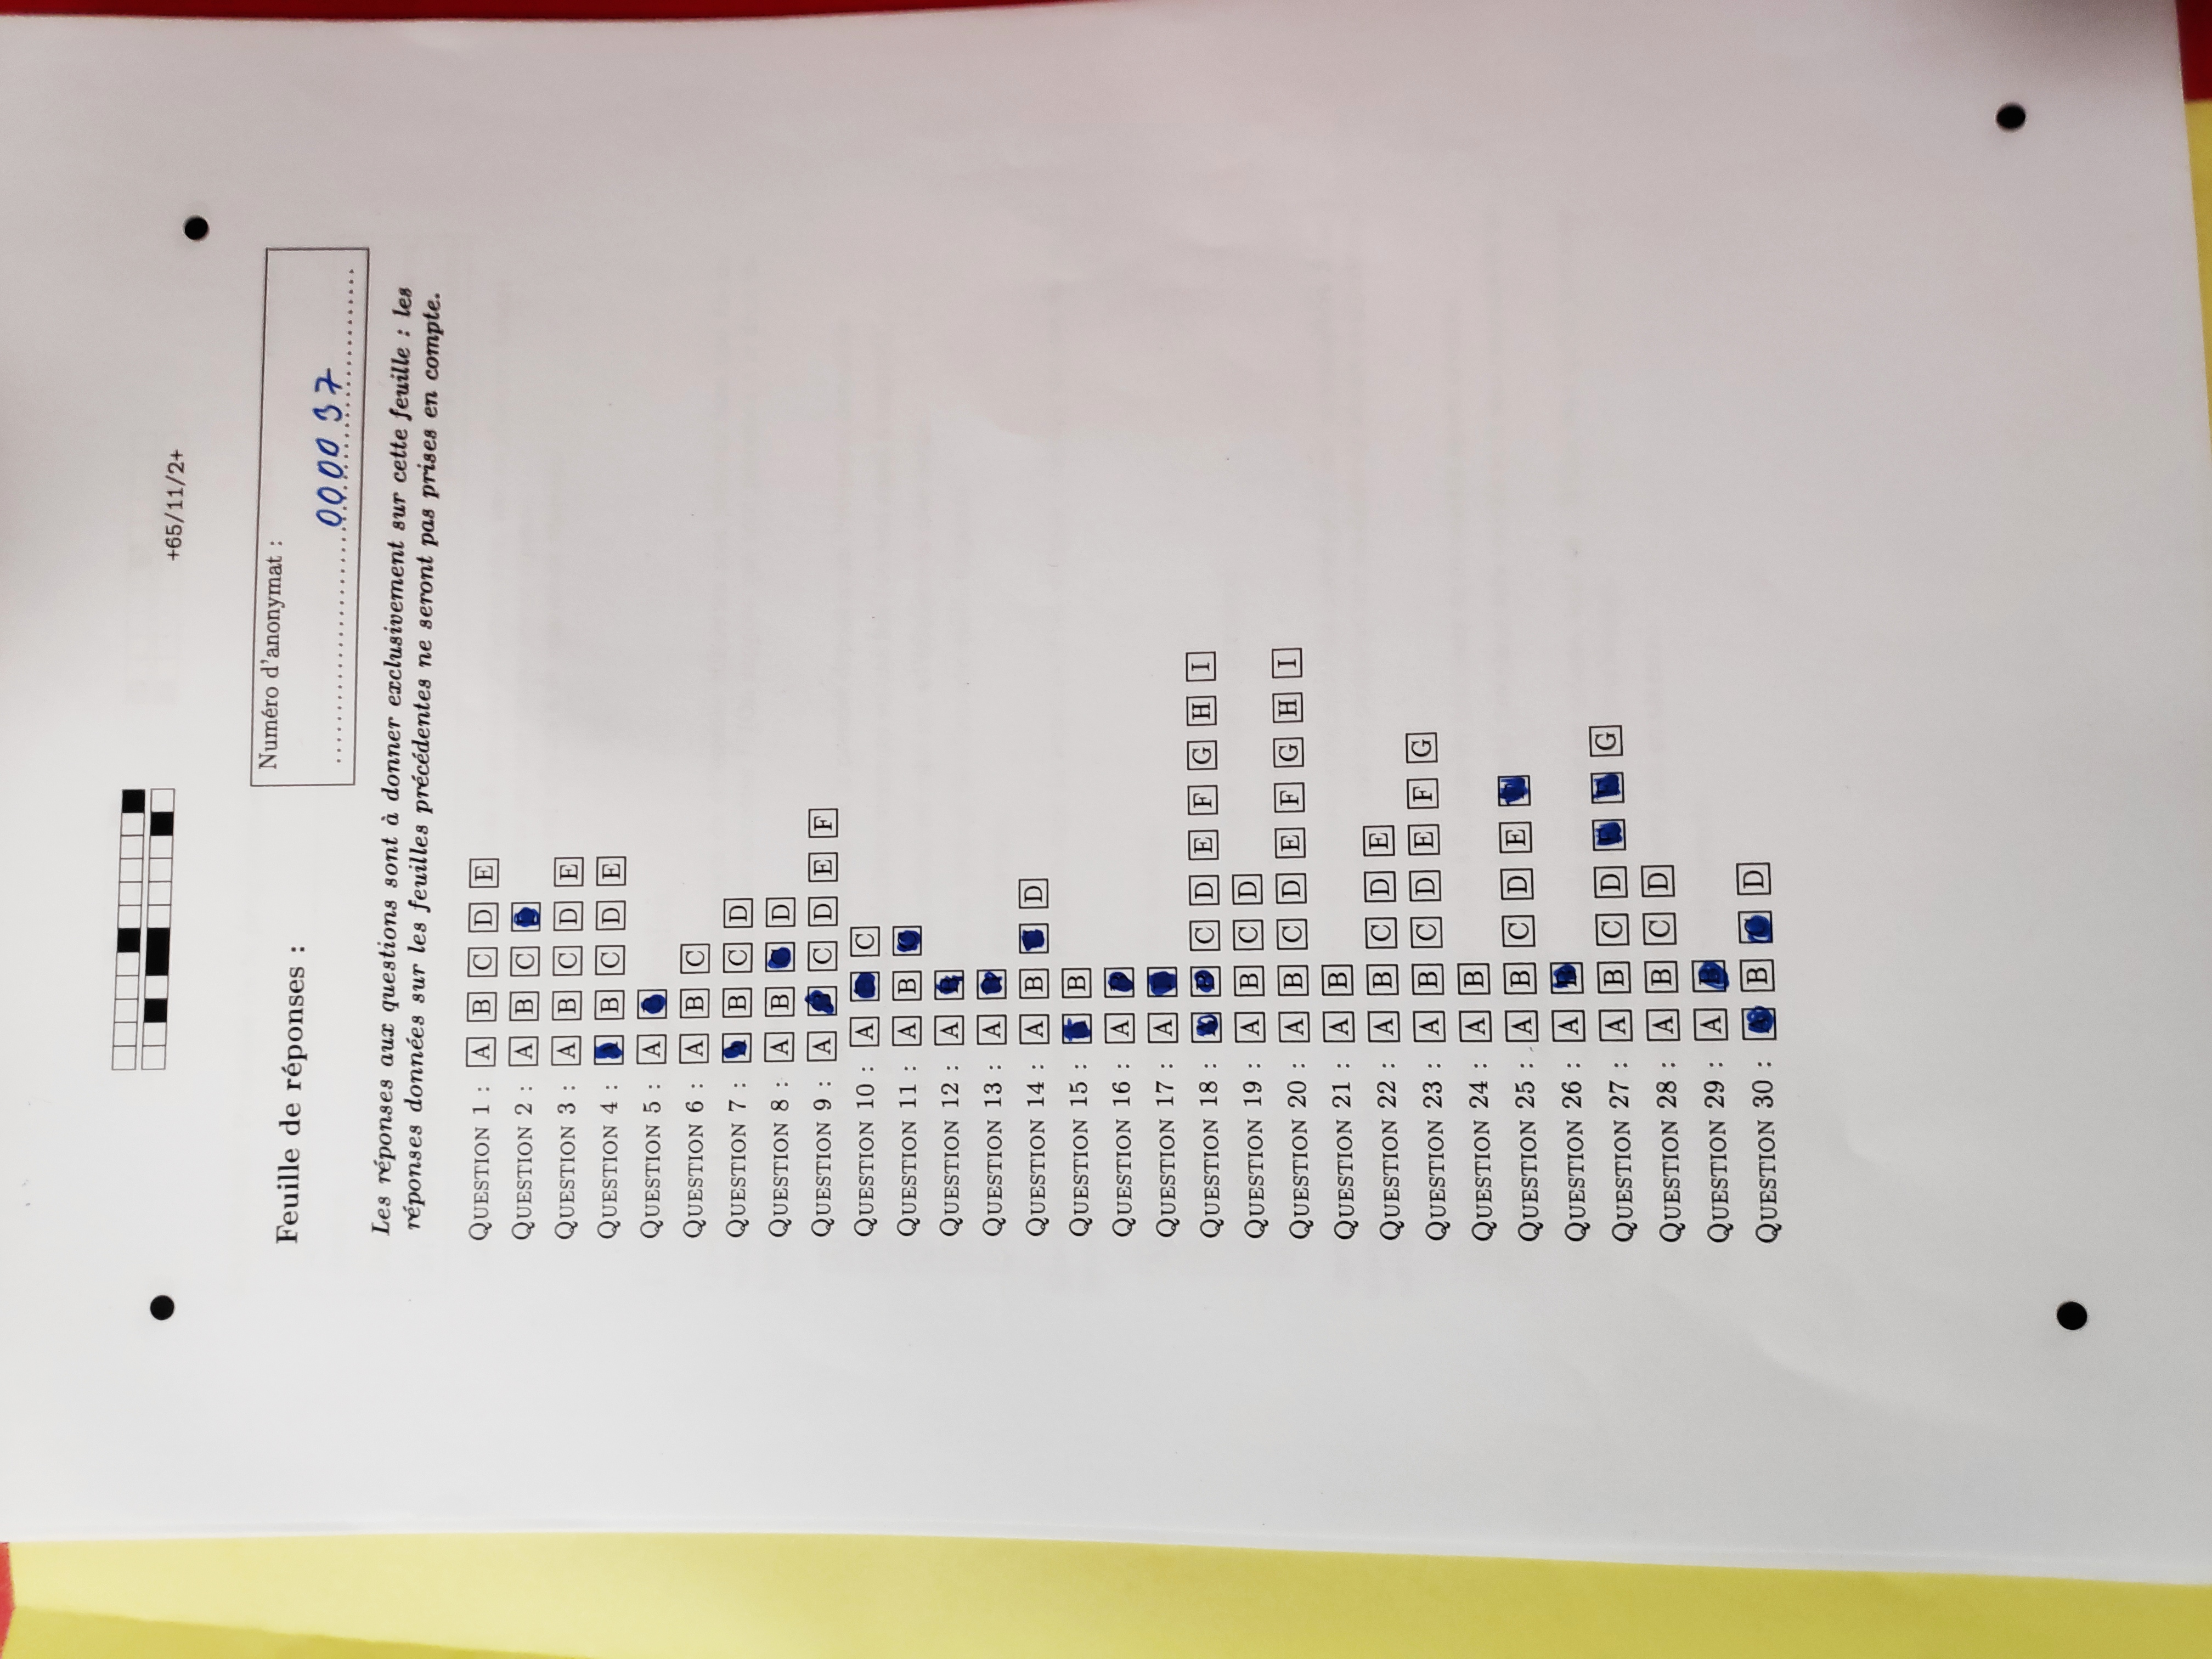 +65/11/2+
Feuille de réponses :
Numéro d'anonymat :
000037
Les réponses aux questions sont à donner exclusivement sur cette feuille : les
réponses données sur les feuilles précédentes ne seront pas prises en compte.
QUESTION 1 : A B C D E
QUESTION 2 : A B C
QUESTION 3 : A B C D E
QUESTION 4 : A B C D E
QUESTION 5 : A
QUESTION 6 : A B C
QUESTION 7 : A B C D
QUESTION 8 : A B C D
QUESTION 9 : A B C D E F
QUESTION 10 : A C
QUESTION 11 : A B
QUESTION 12 : A B
QUESTION 13 : A
QUESTION 14 : A B C D
QUESTION 15 : B
QUESTION 16 : A B
QUESTION 17 : A
QUESTION 18 : A B C D E F G H I
QUESTION 19 : A B C D
QUESTION 20 : A B C D E F G H I
QUESTION 21 : A B
QUESTION 22 : A B C D E
QUESTION 23 : A B C D E F G
QUESTION 24 : A B
QUESTION 25 : A B C D E
QUESTION 26 : A B
QUESTION 27 : A B C D E F G
QUESTION 28 : A B C D
QUESTION 29 : A B
QUESTION 30 : A B C D